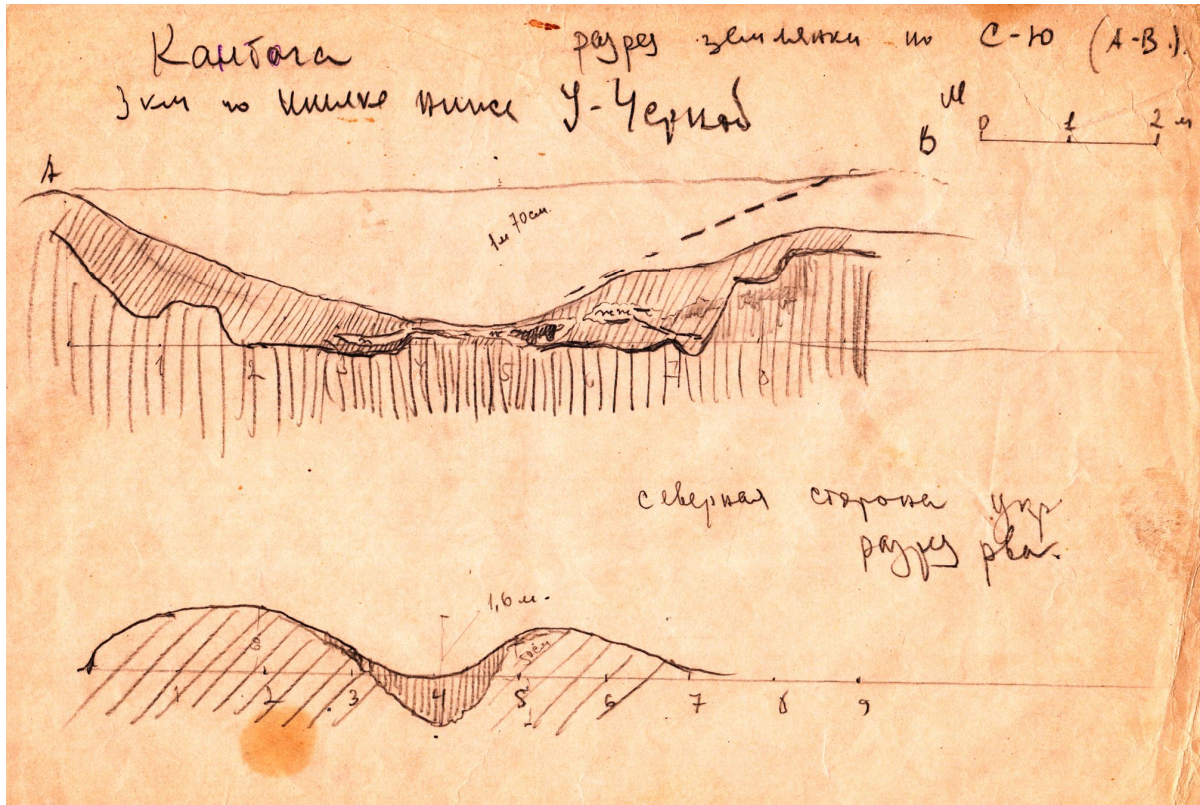 Кантога
разрез землянки по С-Ю (А-В.).
3 км по Шилке ниже У-Черной
М 0 1 2 м
А
В
1м 70см.
1 2 3 4 5 6 7 8
северная сторона укр
разрез рва.
1,6 м.
50см
1 2 3 4 5 6 7 8 9